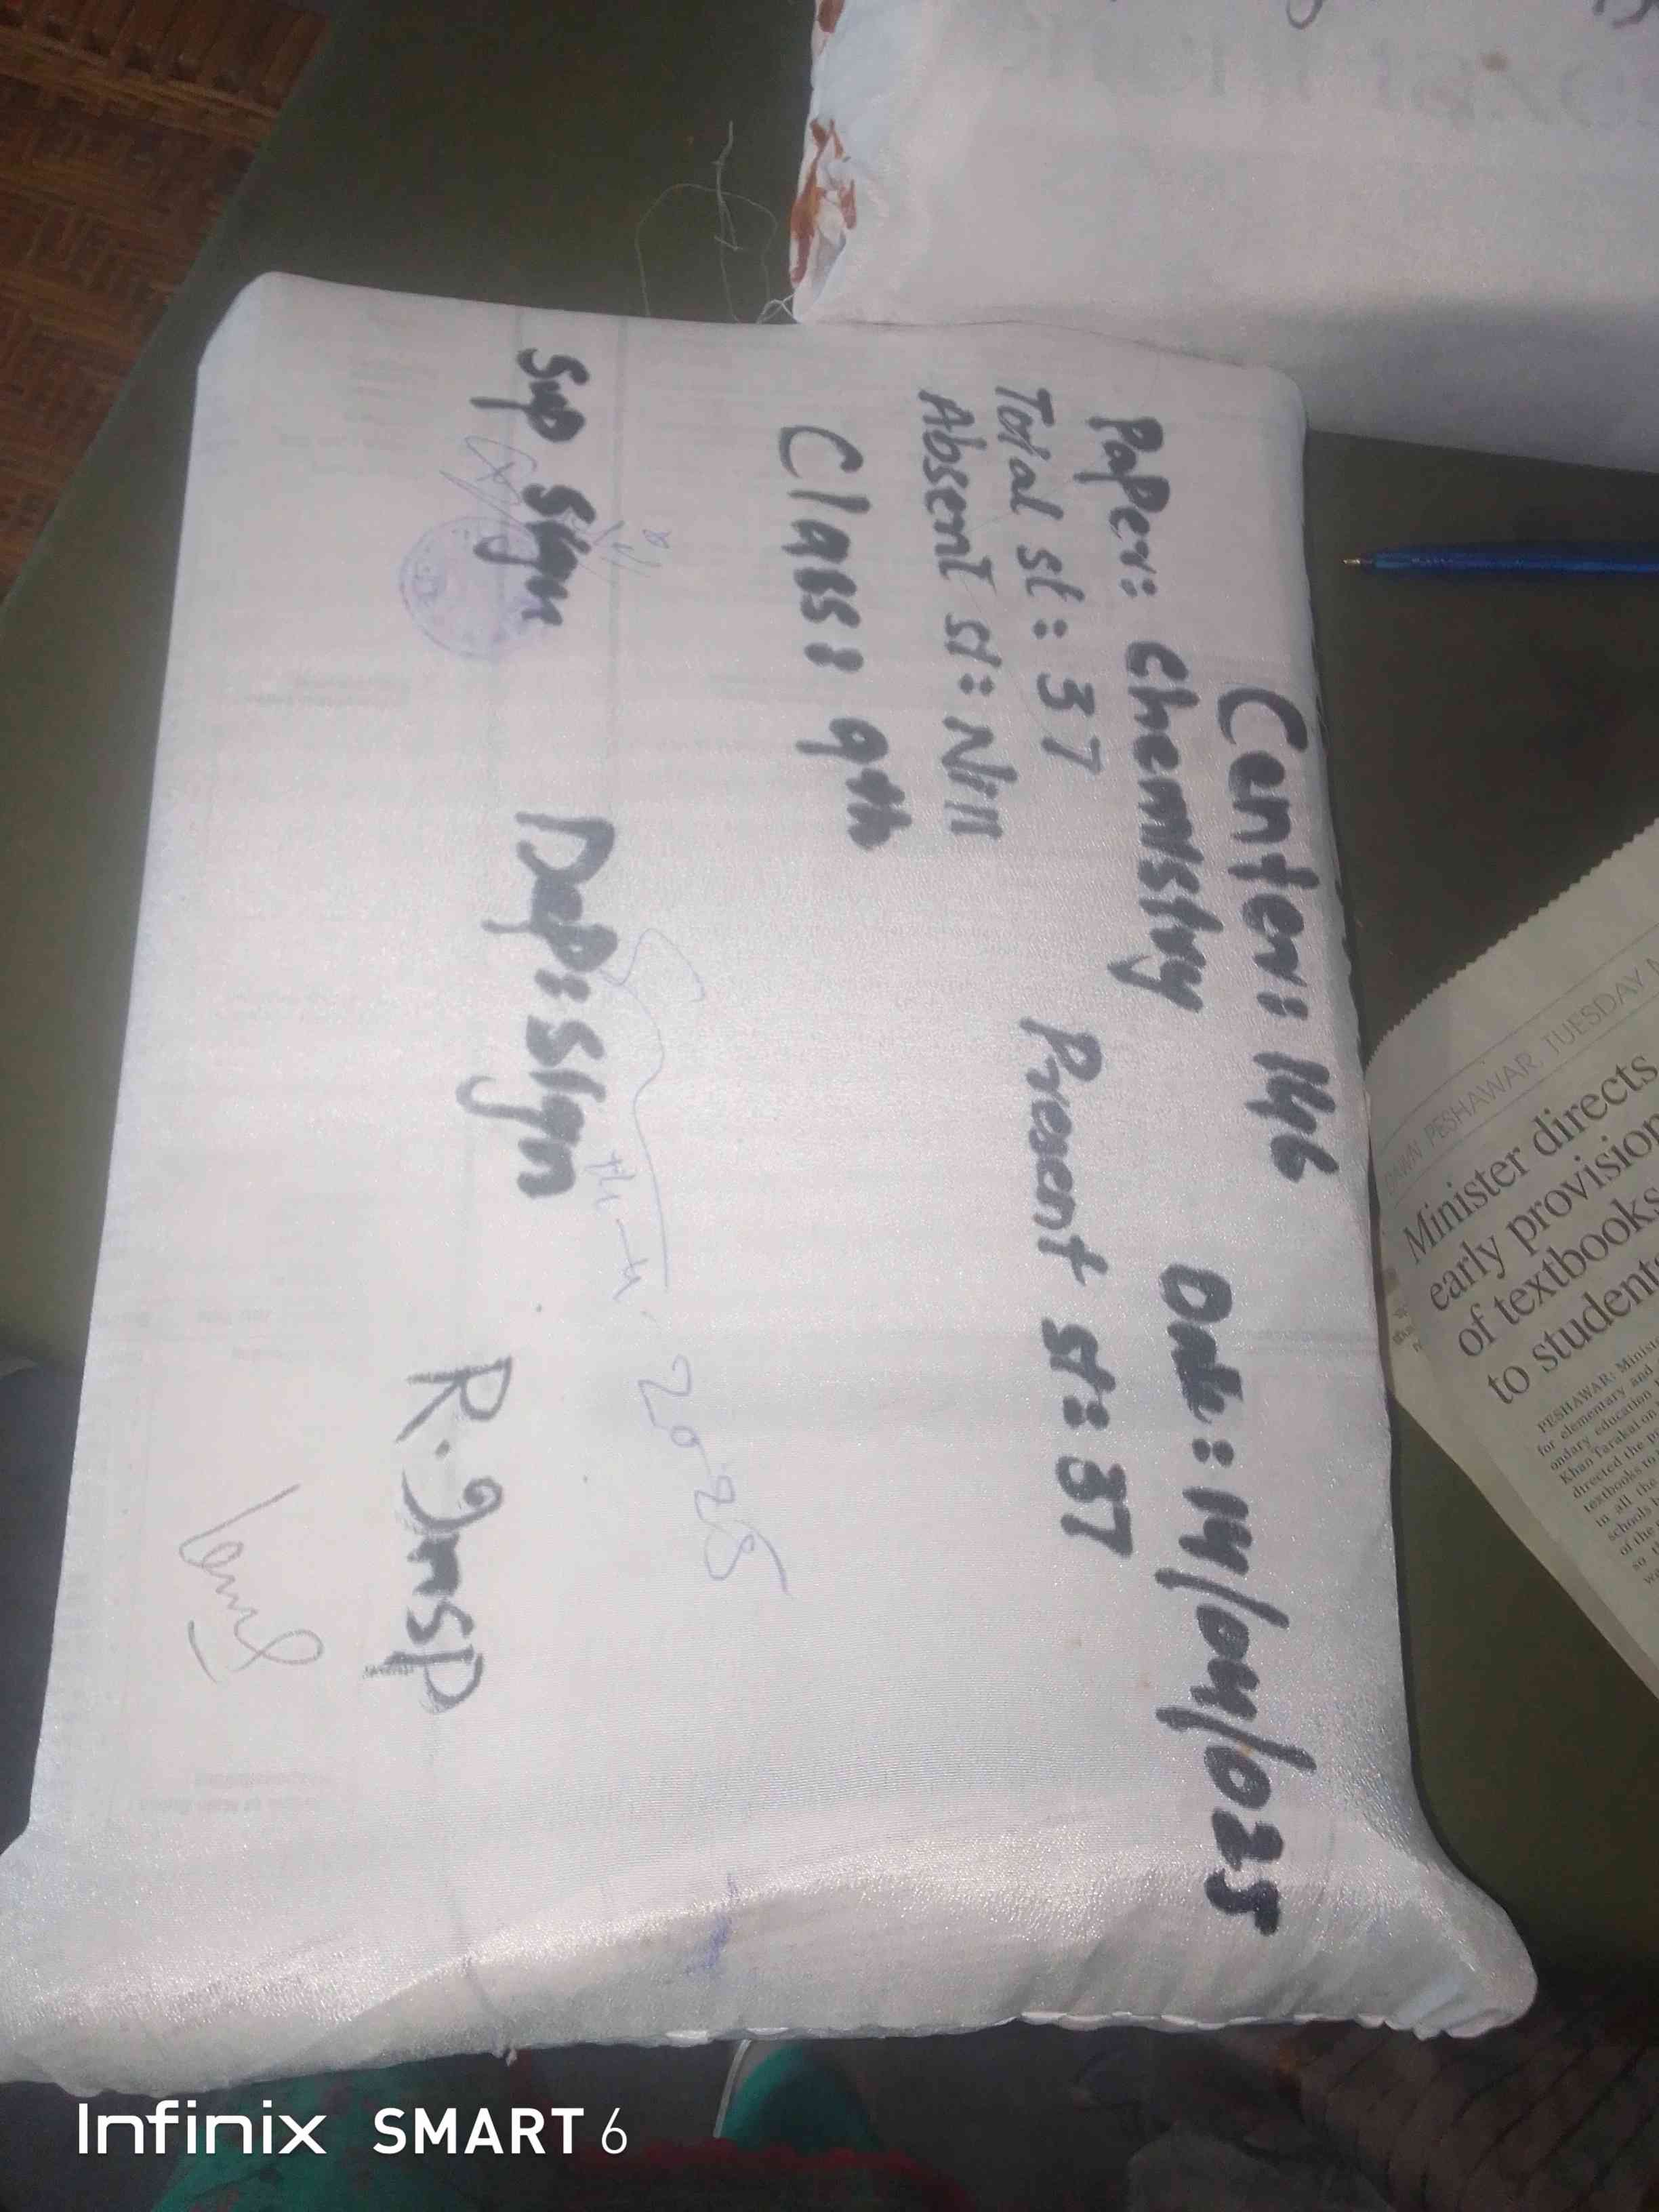 Center: 146
Date: 14/04/025
Paper: Chemistry
Total st: 37
Present st: 37
Absent st: Nill
Class: 9th
Sup sign
Dep: sign
R. Insp
2025
DAWN PESHAWAR, TUESDAY
Minister directs
early provision
of textbooks
to students
PESHAWAR: Minister
for elementary and
ondary education
Khan Tarakai on
directed the
textbooks to
in all the
schools
of the
so
Infinix SMART 6